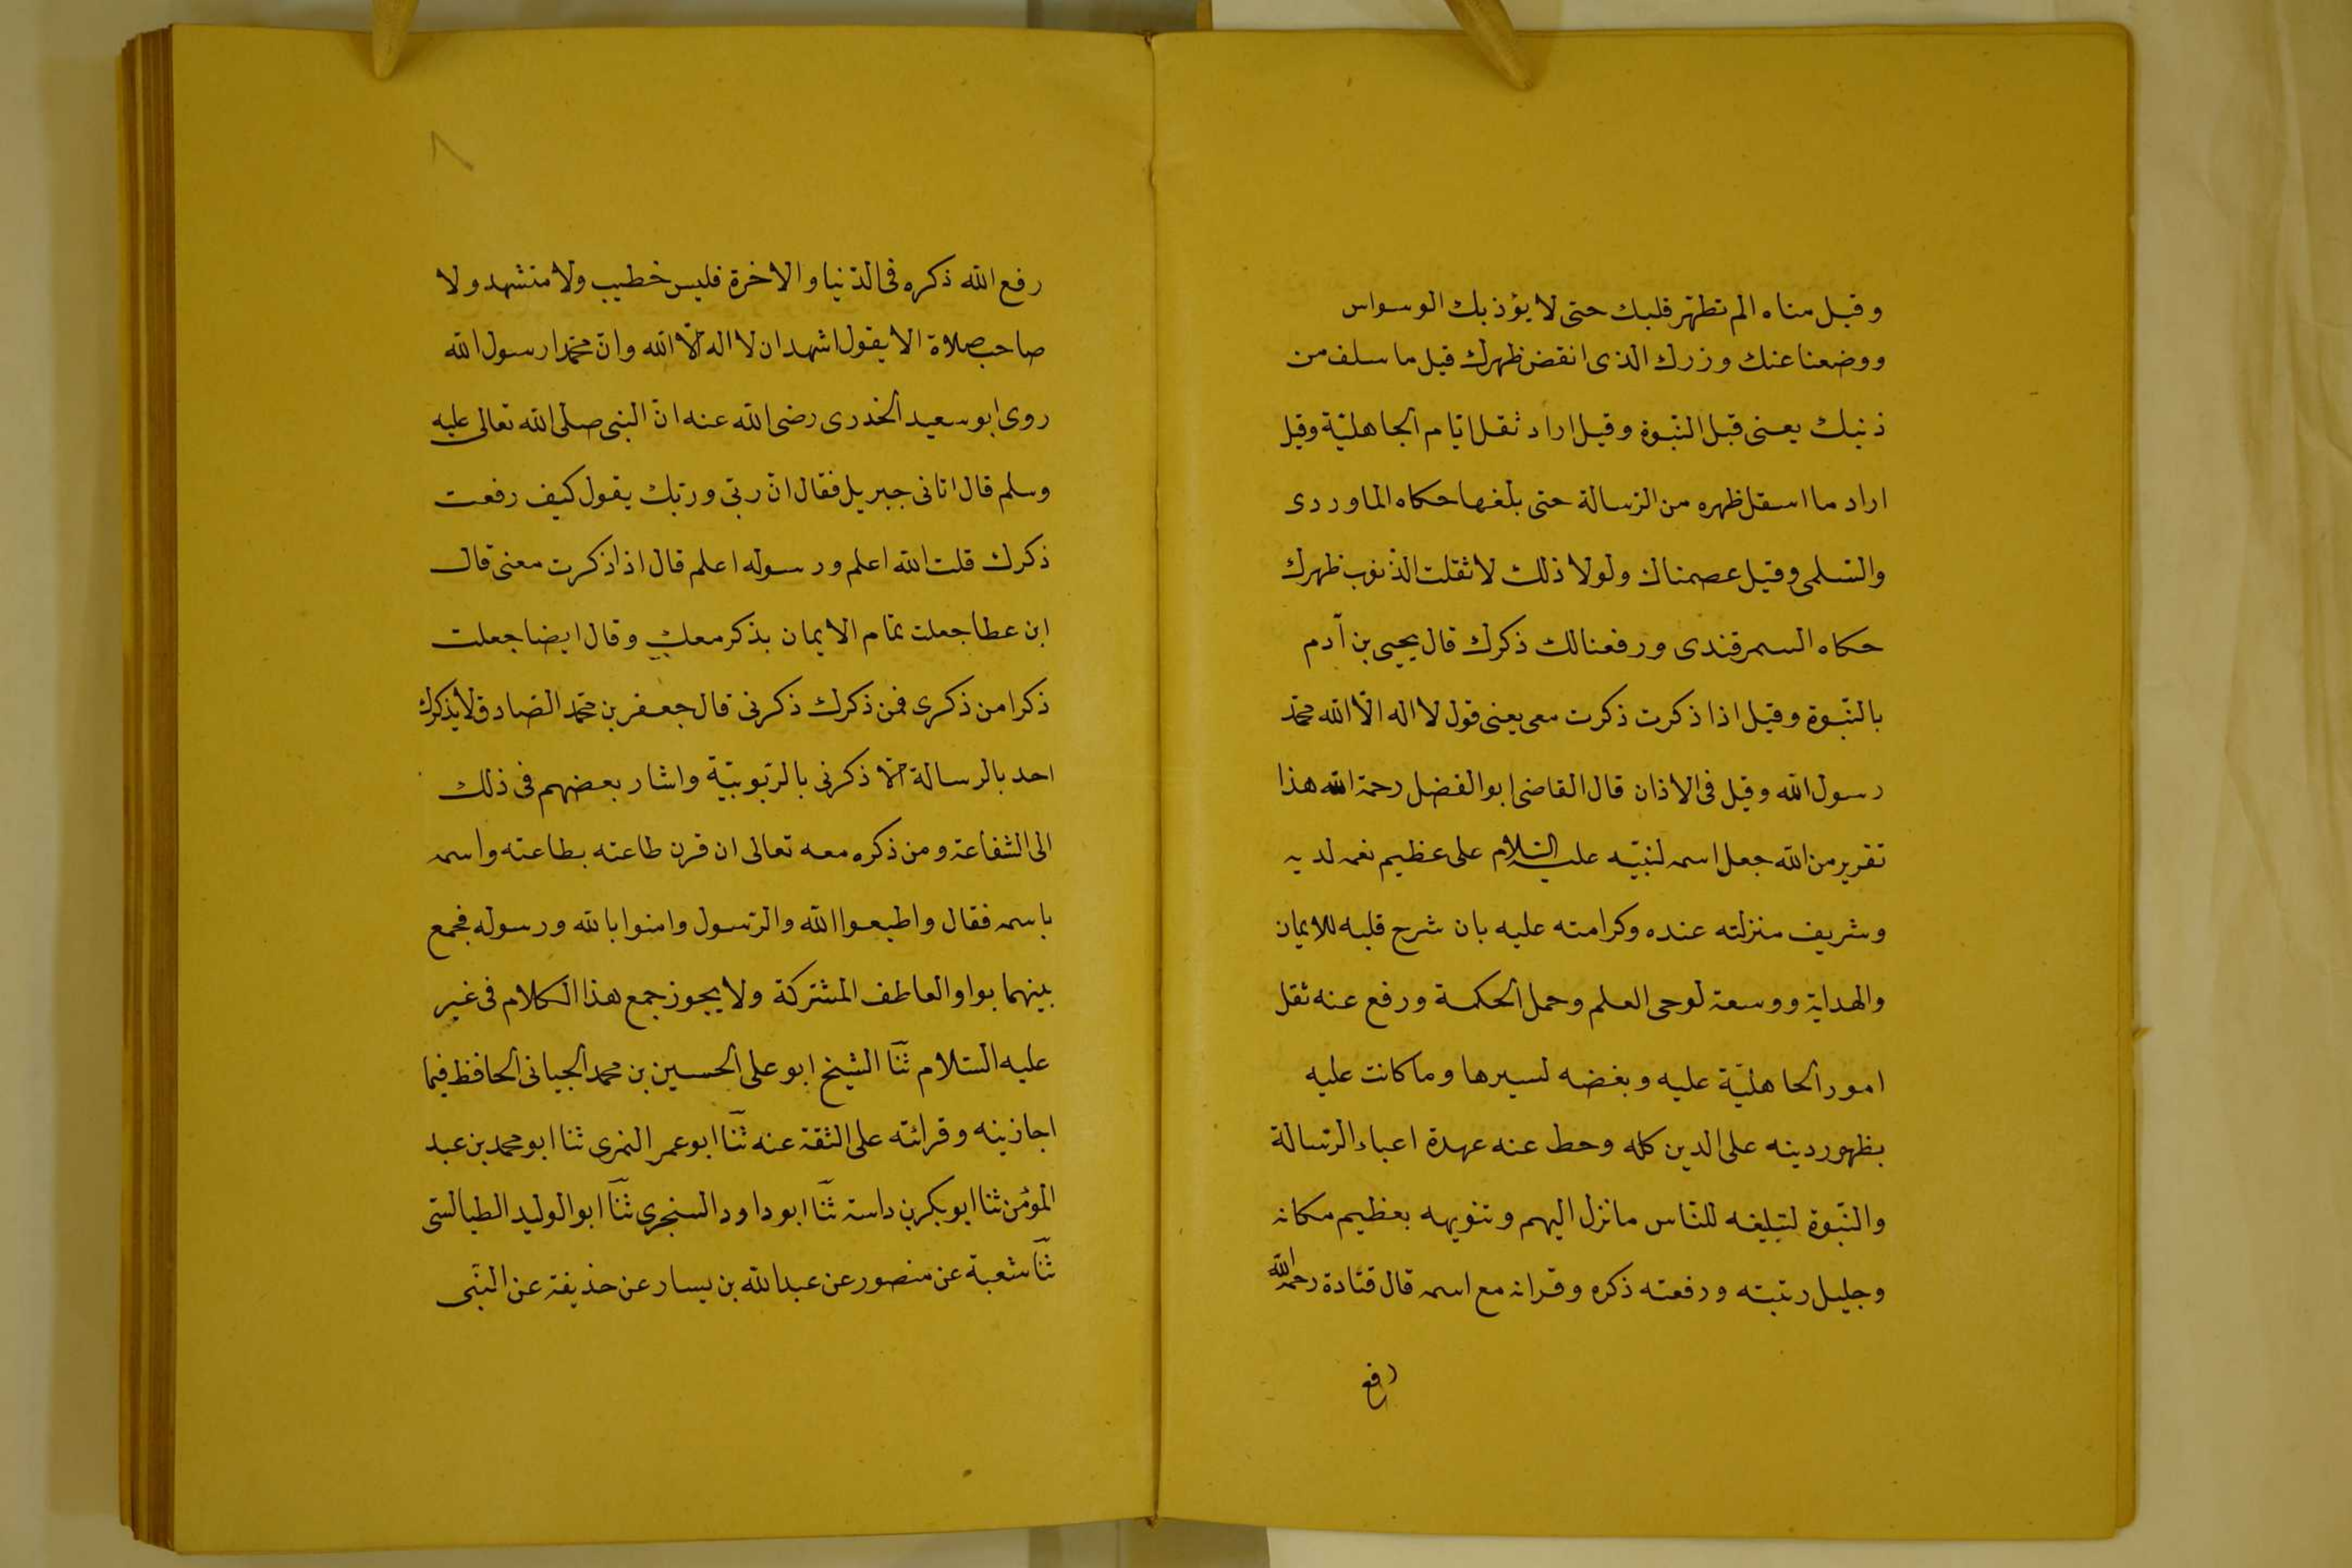 وقيل مناه الم تطهّر قلبك حتى لا يؤذ بك الوسواس
ووضعنا عنك وزرك الذى انقض ظهرك قيل ما سلف من
ذنبك يعنى قبل النّبوة وقيل اراد ثقل ايّام الجاهليّة وقيل
اراد ما اسقل ظهره من الرّسالة حتى بلغها حكاه الماوردى
والسّلمى وقيل عصمناك ولولا ذلك لاثقلت الذّنوب ظهرك
حكاه السمرقندى ورفعنا لك ذكرك قال يحيى بن آدم
بالنّبوة وقيل اذا ذكرت ذكرت معى يعنى قول لا اله الّا الله محمّد
رسول الله وقيل فى الاذان قال القاضى ابو الفضل رحمة الله هذا
تقرير من الله جعل اسمه لنبيّه عليه السّلام على عظيم نعمه لديه
وشريف منزلته عنده وكرامته عليه بان شرح قلبه للايمان
والهداية ووسعة لوحى العلم وحمل الحكمة ورفع عنه ثقل
امور الحاهليّة عليه وبغضه لسيرها وما كانت عليه
بظهور دينه على الدين كله وحط عنه عهدة اعباء الرّسالة
والنّبوة لتبليغه للنّاس ما نزل اليهم وتنويهه بعظيم مكانه
وجليل رتبته ورفعته ذكره وقرانه مع اسمه قال قتادة رحمه الله
رفع
٨
رفع الله ذكره فى الدّنيا والاخرة فليس خطيب ولا متشهد ولا
صاحب صلاة الا يقول اشهد ان لا اله الّا الله وانّ محمّدا رسول الله
روى ابو سعيد الخدرى رضى الله عنه انّ النبى صلى الله تعالى عليه
وسلم قال اتانى جبريل فقال انّ ربّى وربّك يقول كيف رفعت
ذكرك قلت الله اعلم ورسوله اعلم قال اذا ذكرت معنى قال
ابن عطا جعلت تمّام الايمان بذكر معك وقال ايضا جعلت
ذكرا من ذكرى فمن ذكرك ذكرنى قال جعفر بن محمّد الصّادق لا يذكرك
احد بالرسالة الّا ذكرنى بالرّبوبيّة واشار بعضهم فى ذلك
الى الشفاعة ومن ذكره معه تعالى ان قرن طاعته بطاعته واسمه
باسمه فقال واطيعوا الله والرّسول وامنوا بالله ورسوله فجمع
بينهما بواو العاطف المشتركة ولا يجوز جمع هذا الكلام فى غير
عليه السّلام ثنا الشيخ ابو على الحسين بن محمد الجيانى الحافظ فيما
اجازينه وقرائته على الثقة عنه ثنا ابو عمر النمرى ثنا ابو محمد بن عبد
المؤمن ثنا ابو بكر بن داسة ثنا ابو داود السنجرى ثنا ابو الوليد الطيالسّى
ثنا شعبة عن منصور عن عبد الله بن يسار عن حذيفة عن النبّى